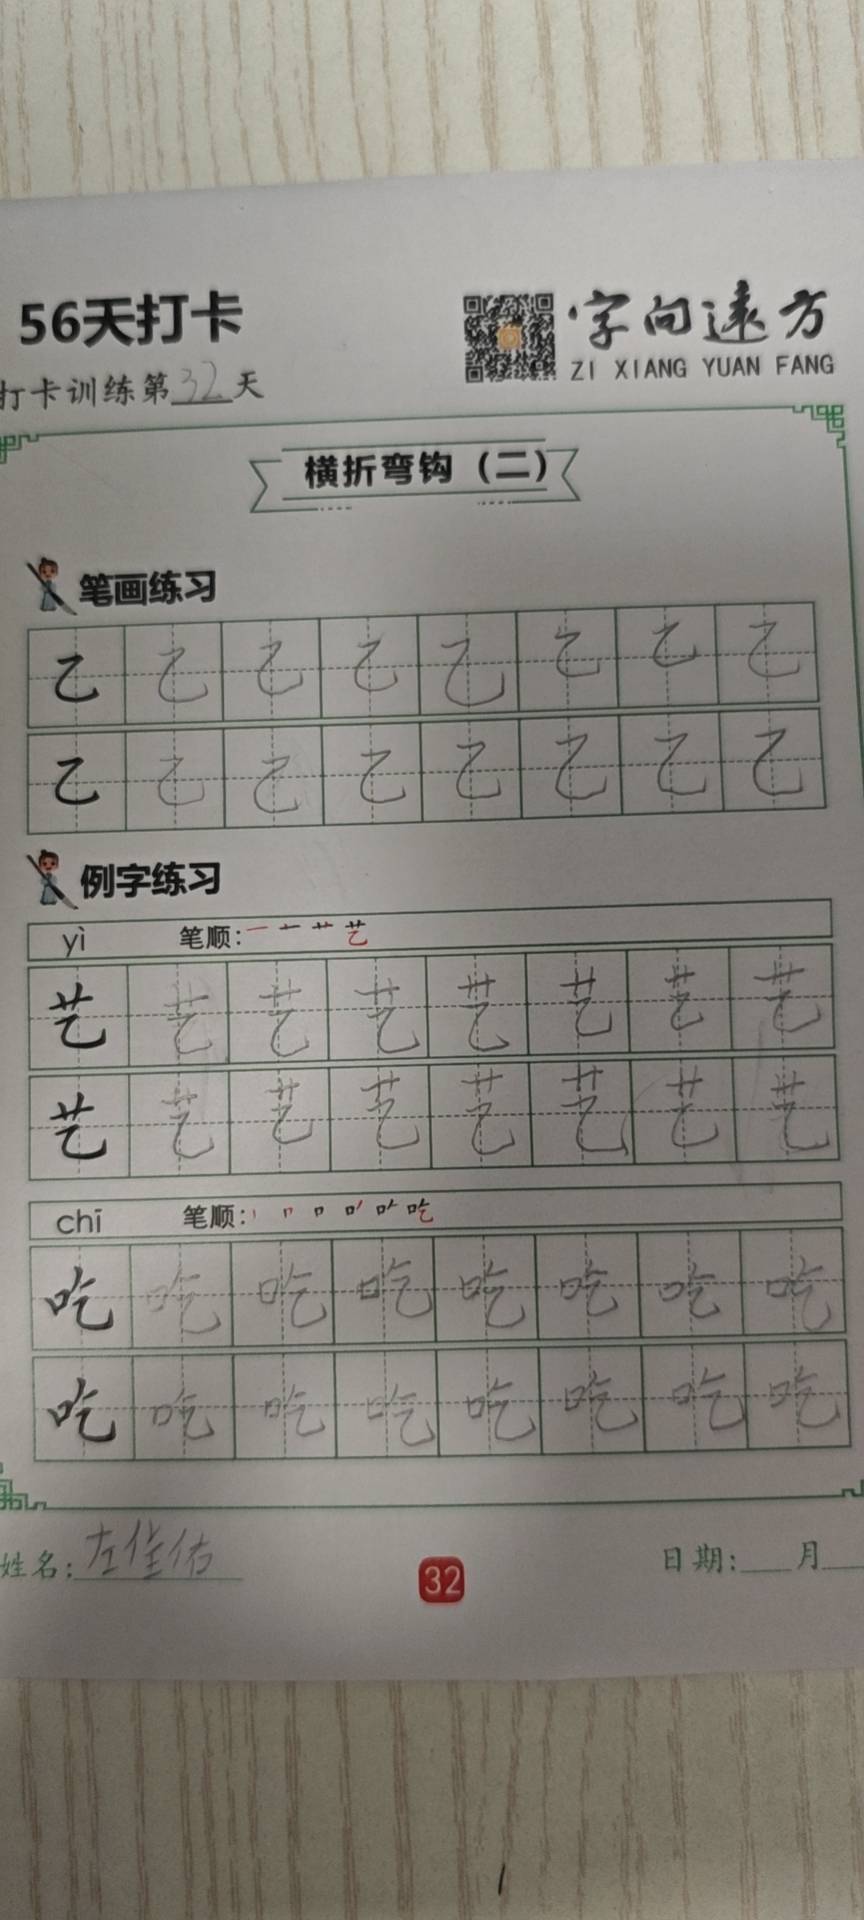 56天打卡
字向遠方
ZI XIANG YUAN FANG
打卡训练第32天
横折弯钩（二）
笔画练习
乙 乙 乙 乙 乙 乙 乙 乙
乙 乙 乙 乙 乙 乙 乙 乙
例字练习
yì 笔顺：一 艹 艺
艺 艺 艺 艺 艺 艺 艺 艺
艺 艺 艺 艺 艺 艺 艺 艺
chī 笔顺： 吃
吃 吃 吃 吃 吃 吃 吃 吃
吃 吃 吃 吃 吃 吃 吃 吃
姓名：左佳佑
32
日期：___月